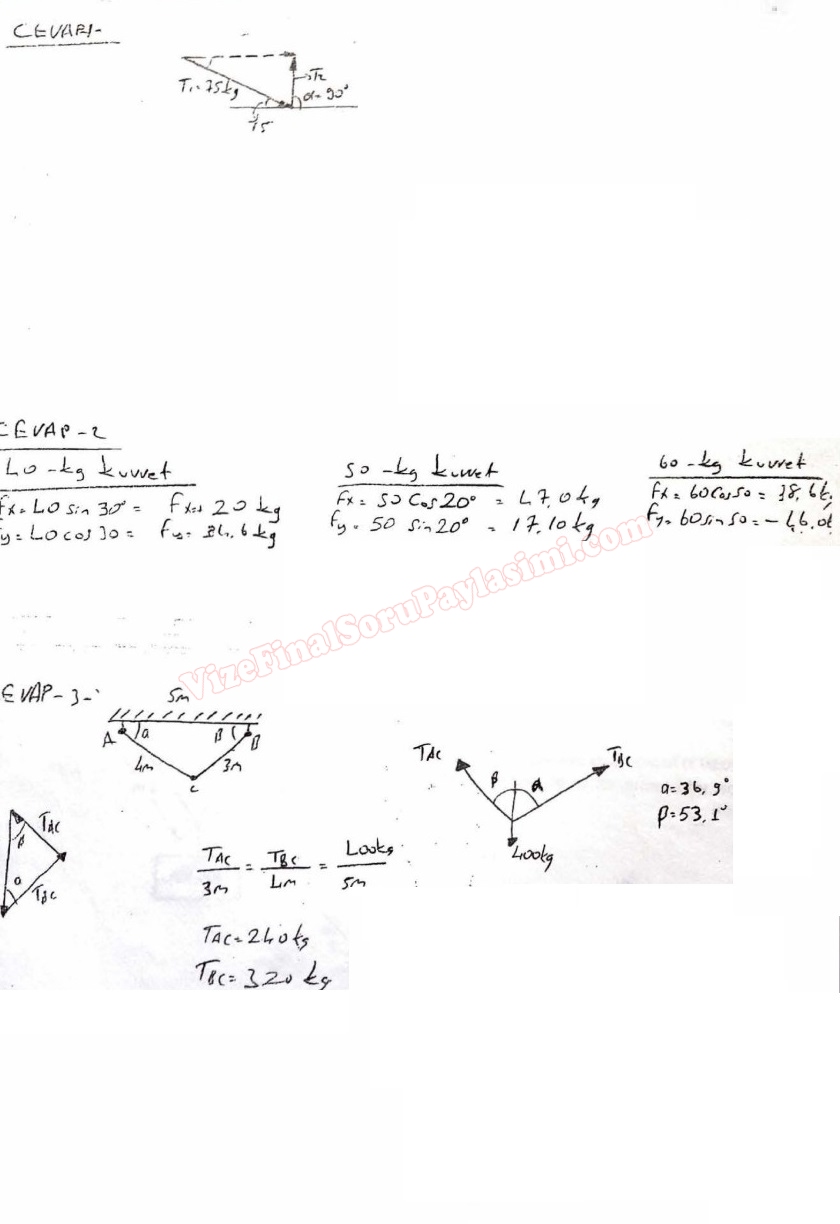 CEVAP1-
T1=75kg
T2
α=90°
15
CEVAP-2
40-kg kuvvet
Fx=40 sin 30°= Fx= 20 kg
Fy=40 cos 30= Fy= 34.6 kg
50-kg kuvvet
Fx= 50 Cos 20° = 47,0 kg
Fy= 50 sin 20° = 17.10 kg
60-kg kuvvet
Fx= 60 cos 50= 38,6 k
Fy= 60 sin 50= -46,0 k
VizeFinalSoruPaylasimi.com
EVAP-3-
5m
A a B B
4m 3m
C
TAC TBC
β α
400kg
a=36,9°
β=53,1°
TAC
β
a
TBC
TAC/3m = TBC/4m = 400kg/5m
TAC=240kg
TBC=320 kg